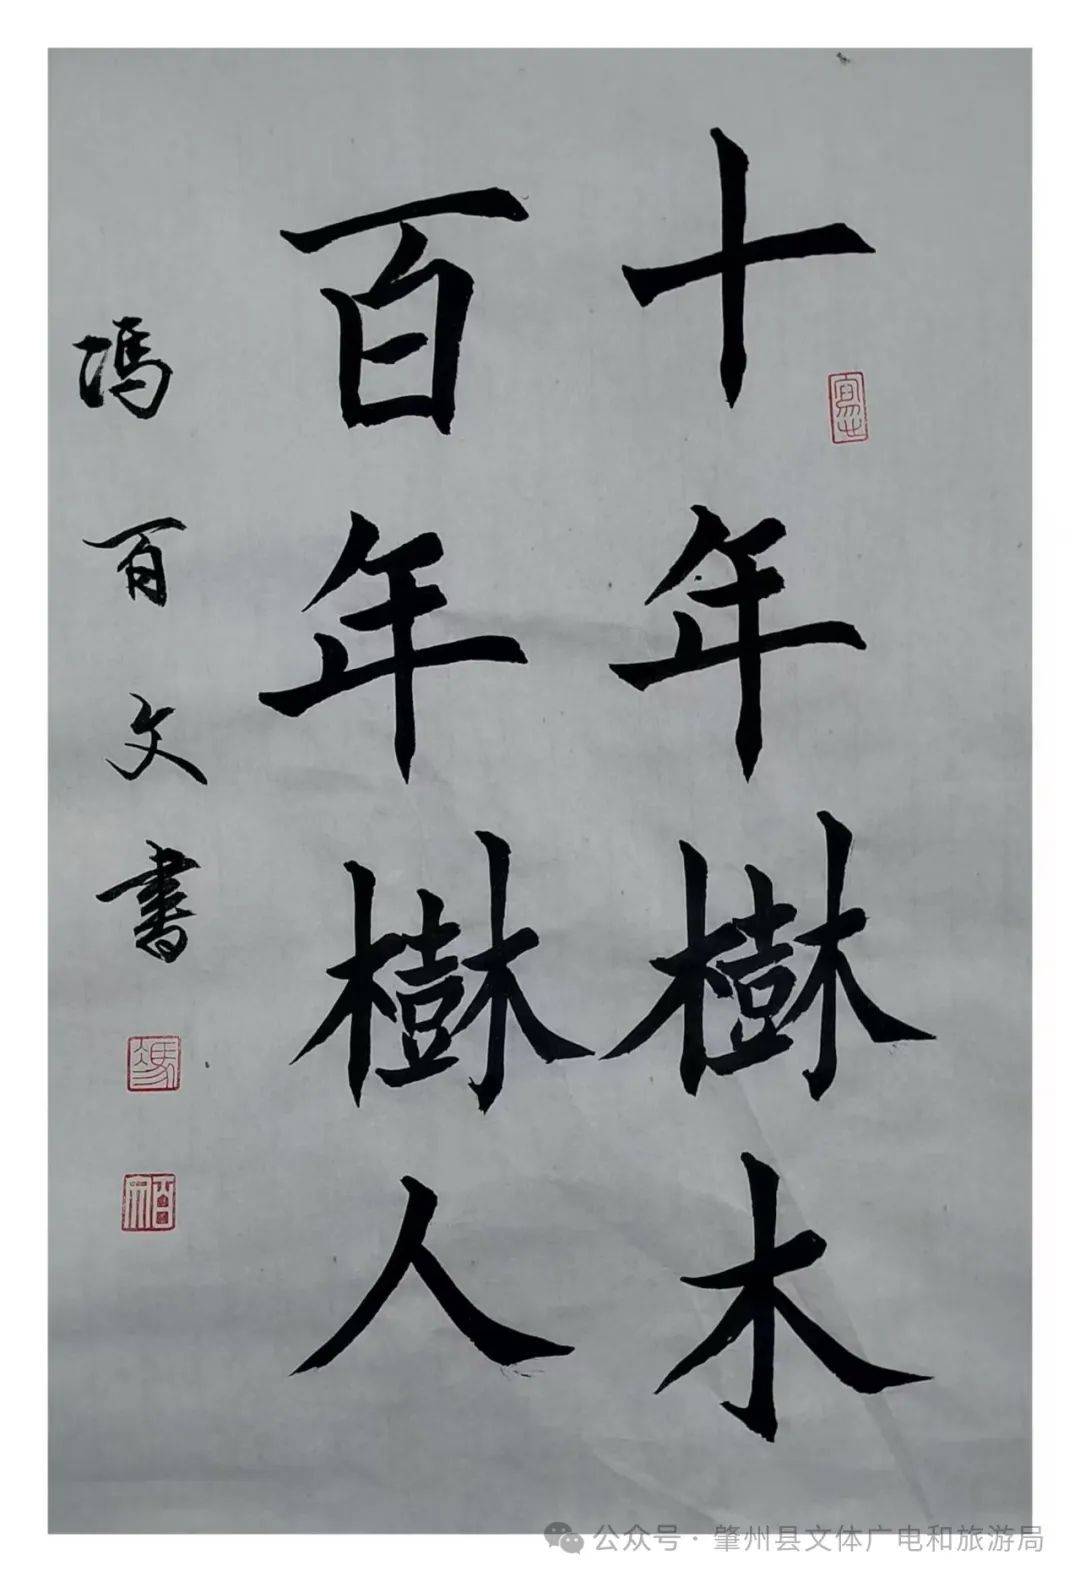 十年樹木
百年樹人
馮百文書
公众号 · 肇州县文体广电和旅游局